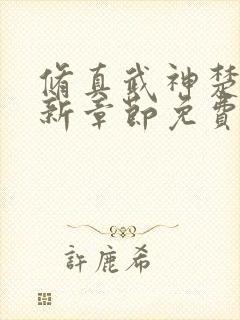 脩真武神楚
新章節免費
許鹿希